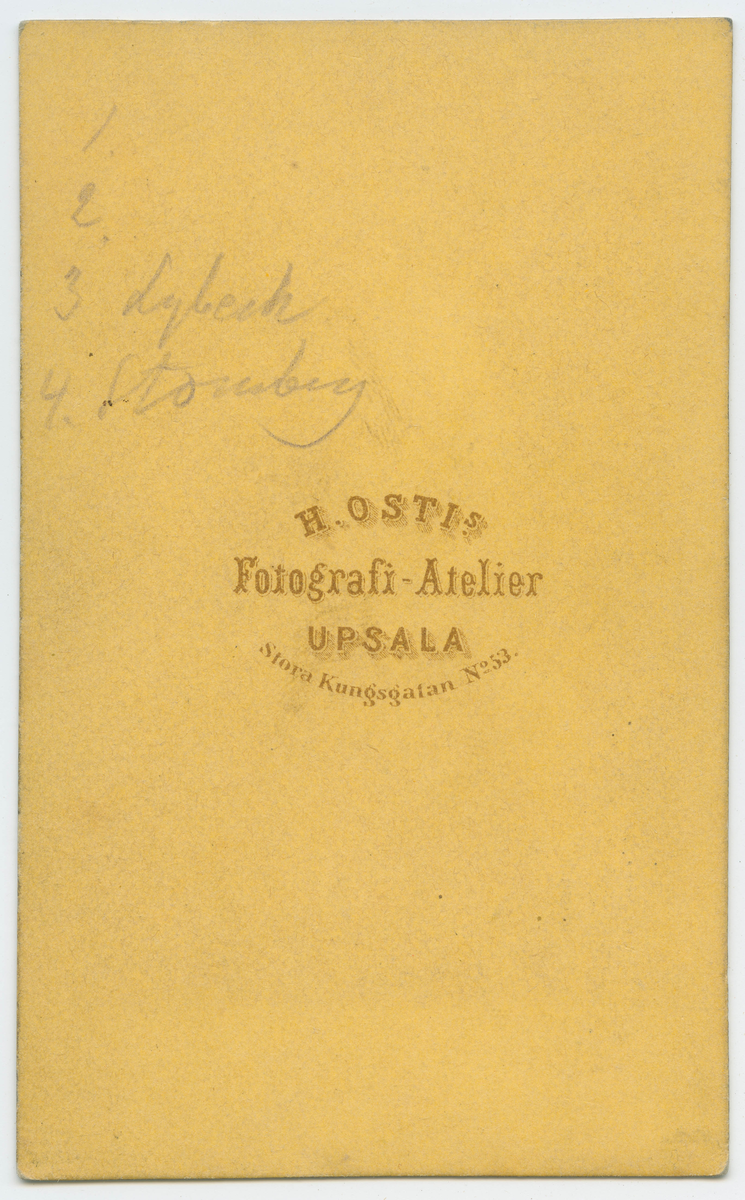 1.
2.
3 Lybeck
4.
H. OSTIs.
Fotografi-Atelier
UPSALA
Stora Kungsgatan No 53.